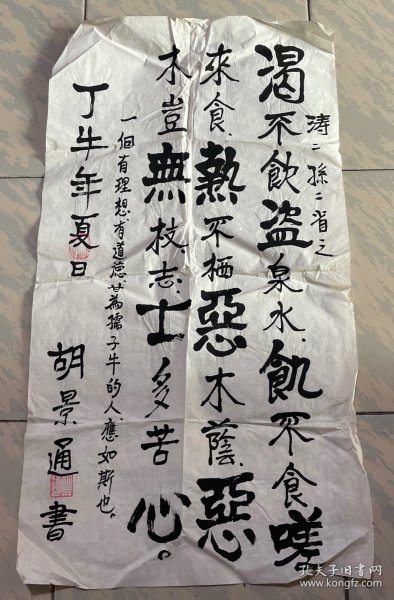 涛二孫二省之
渴不飲盜泉水、飢不食嗟
來食、熱不栖惡木蔭、惡
木豈無枝、志士多苦心。
一個有理想、有道德、甘為孺子牛的人、應如斯也。
丁牛年夏日
胡景通書
孔夫子旧书网
www.kongfz.com